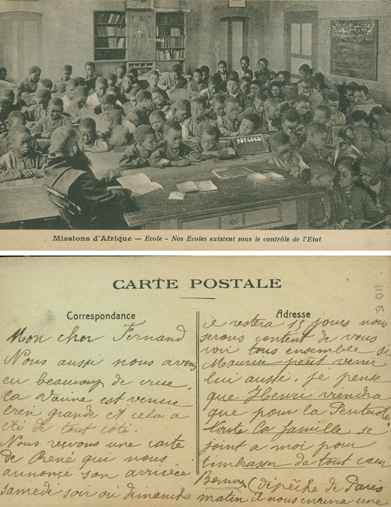 Missions d'Afrique — Ecole - Nos Ecoles existent sous le contrôle de l'Etat
CARTE POSTALE
Correspondance
Mon cher Fernand
Nous aussi nous avons
eu beaucoup de crue,
la Vanne est venue
grande et cela a
été de tout côté.
Nous recevons une carte
de René qui nous
annonce son arrivée
samedi soir ou dimanche
Adresse
il restera 15 jours nous
serons content de vous
voir tous ensemble si
Maurice peut venir
lui aussi, je pense
que Henri viendra
que pour la Pentecôte
Toute la famille se
joint a moi pour
embrasser de tout cœur
(dépêche de Paris
matin il nous enverra une